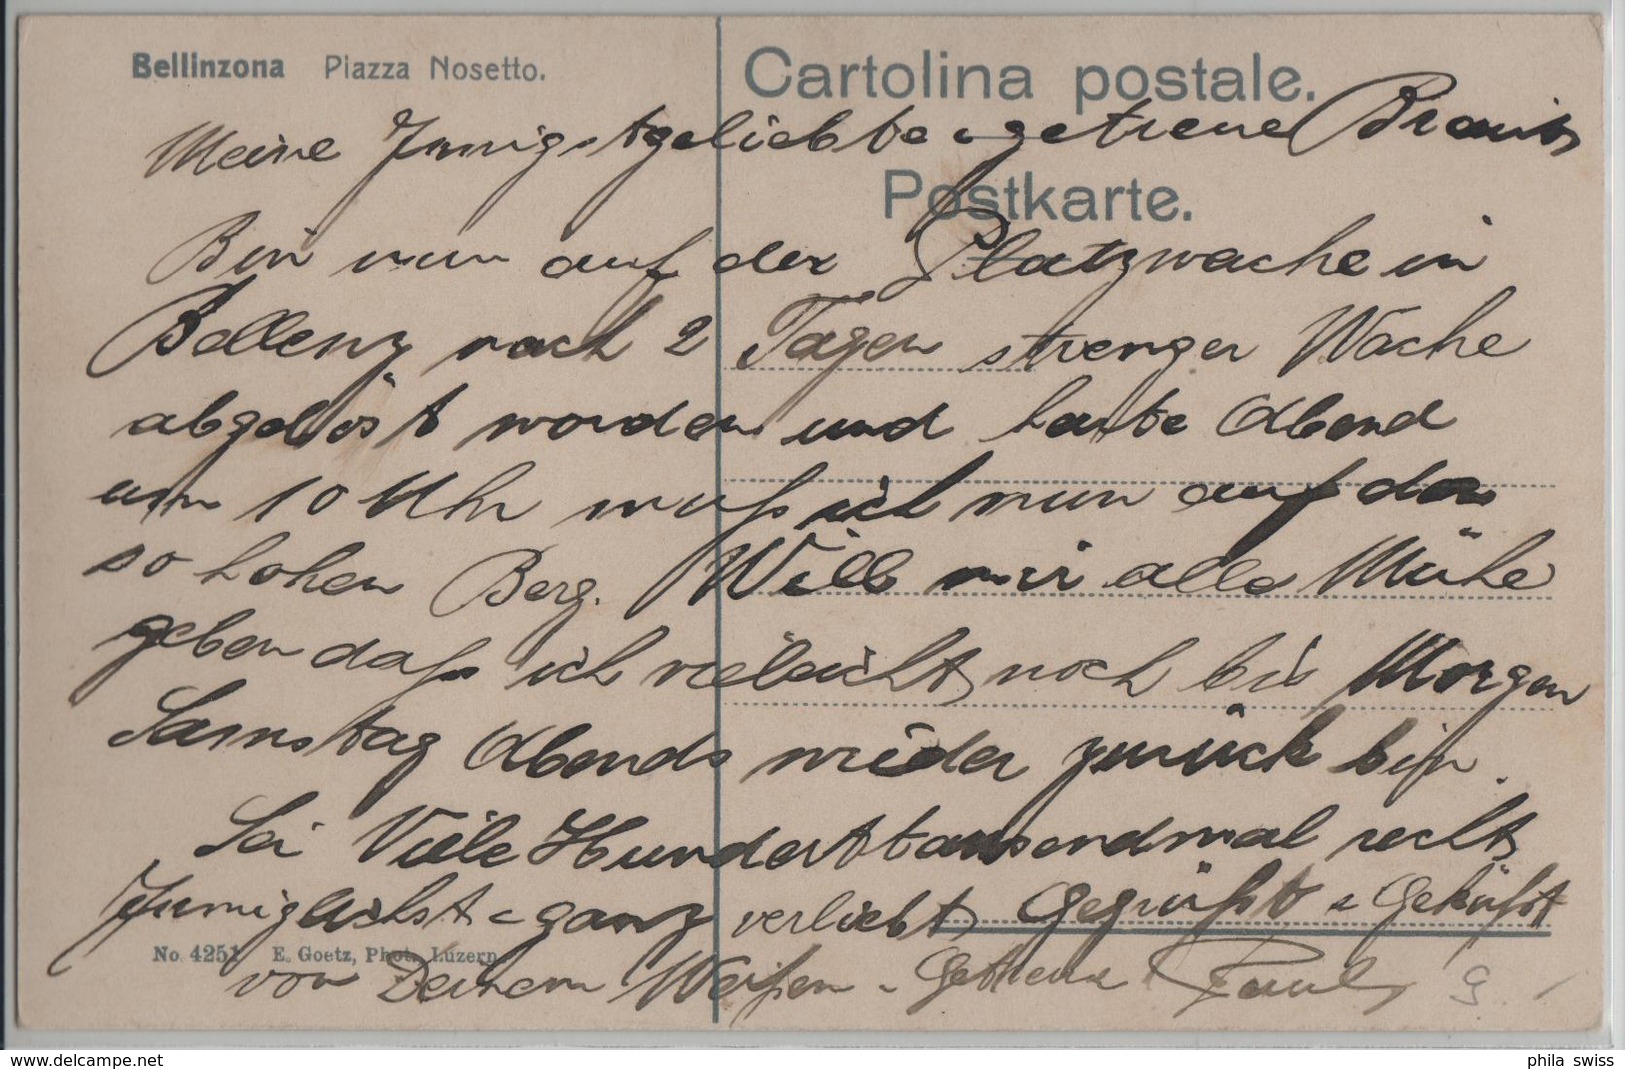 Bellinzona Piazza Nosetto.
Cartolina postale.
Meine Innigstgeliebte & getreue Braut
Postkarte.
Bin nun auf der Platzwache in
Bellenz nach 2 Tagen strenger Wache
abgelöst worden und heute Abend
um 10 Uhr muß ich nun auf den
so hohen Berg. Will mir alle Mühe
geben daß ich vieleicht noch bis Morgen
Samstag Abends wieder zurück bin.
Sei Viele Hunderttausendmal recht
Inniglichst & ganz verliebt Gegrüßt & Geküßt
No. 4251 E. Goetz, Phot., Luzern.
von Deinem & Getreue Paul
www.delcampe.net
phila swiss